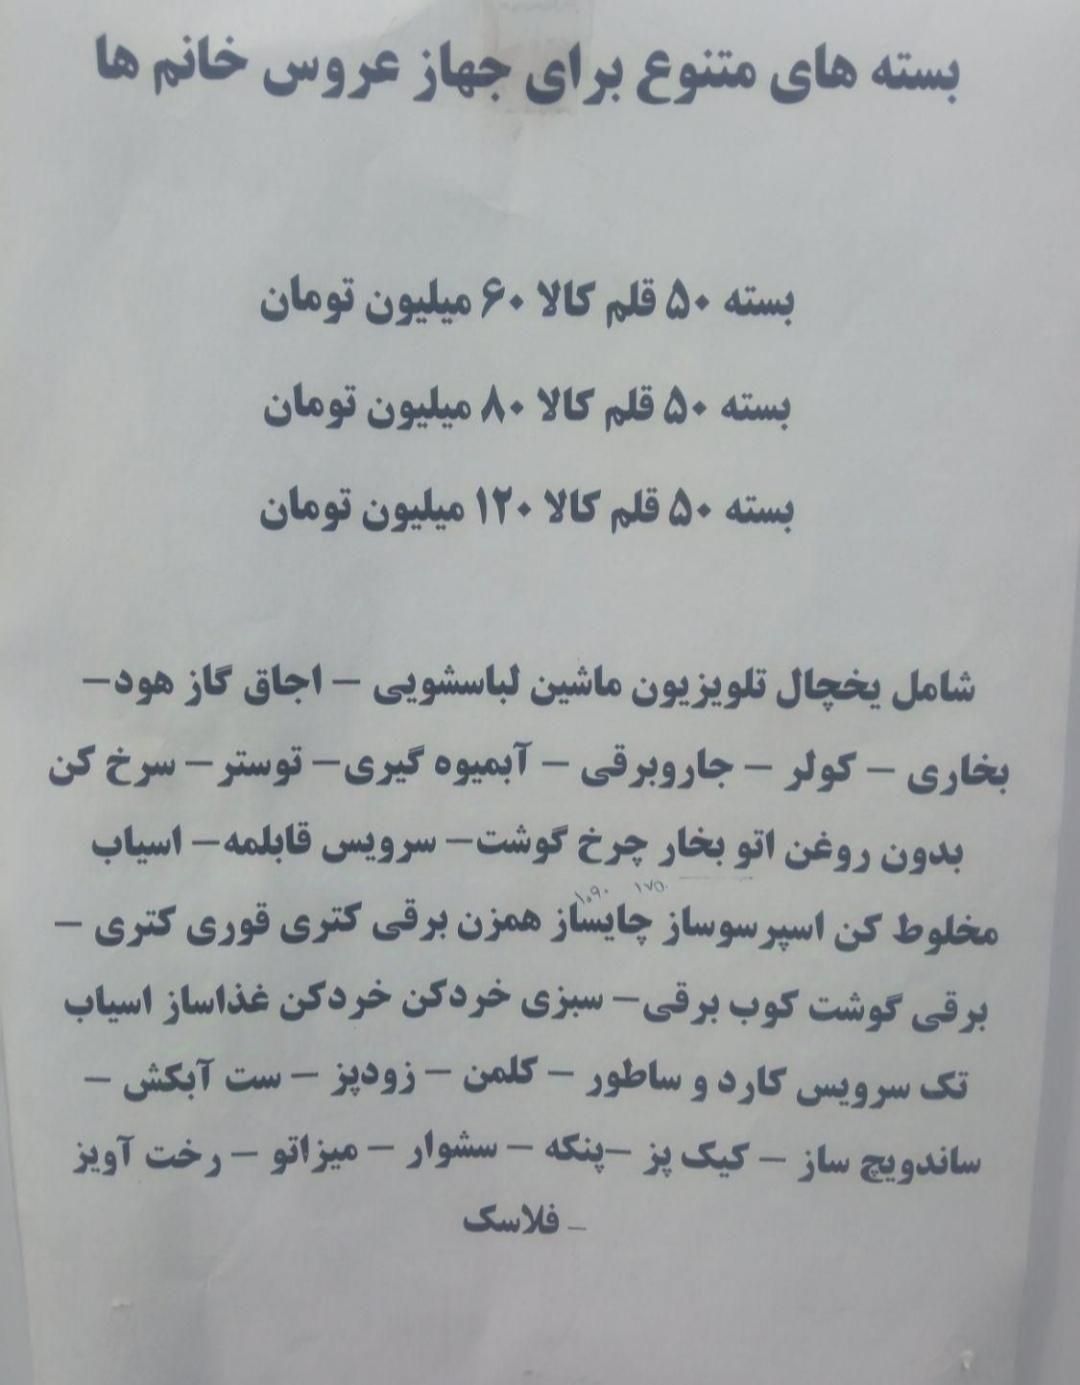 بسته های متنوع برای جهاز عروس خانم ها
بسته ۵۰ قلم کالا ۶۰ میلیون تومان
بسته ۵۰ قلم کالا ۸۰ میلیون تومان
بسته ۵۰ قلم کالا ۱۲۰ میلیون تومان
شامل یخچال تلویزیون ماشین لباسشویی – اجاق گاز هود–
بخاری – کولر – جاروبرقی – آبمیوه گیری– توستر– سرخ کن
بدون روغن اتو بخار چرخ گوشت– سرویس قابلمه– اسیاب
مخلوط کن اسپرسوساز چایساز همزن برقی کتری قوری کتری –
برقی گوشت کوب برقی– سبزی خردکن خردکن غذاساز اسیاب
تک سرویس کارد و ساطور – کلمن – زودپز – ست آبکش –
ساندویچ ساز – کیک پز –پنکه – سشوار – میزاتو – رخت آویز
– فلاسک